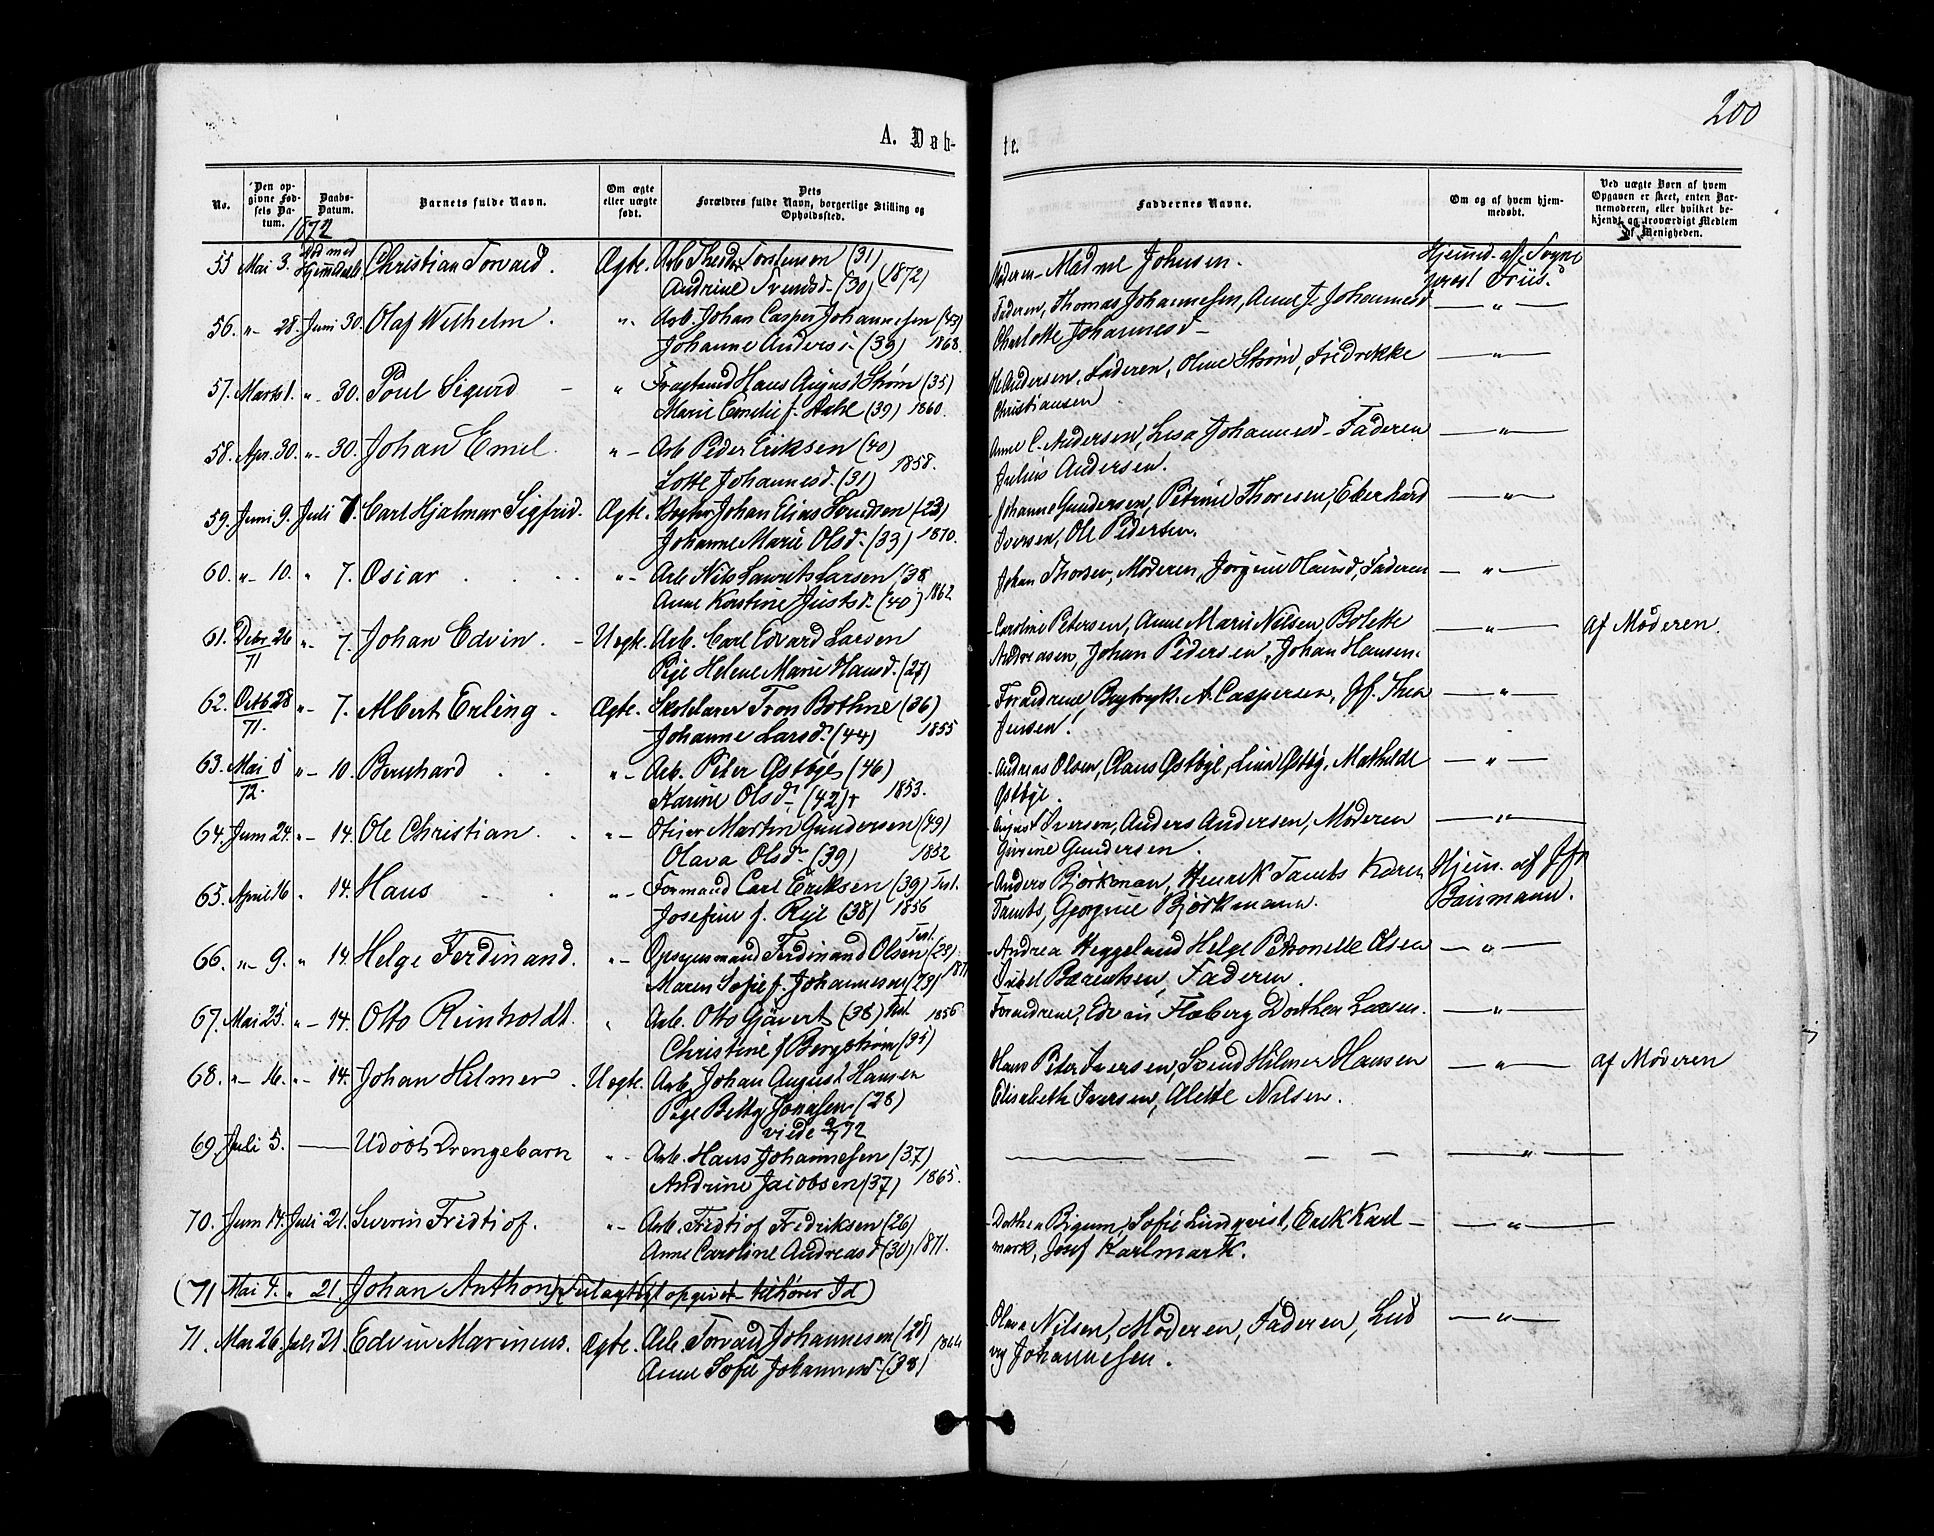 200
A. Døb-
te.
No.
Den op-
givne Fød-
sels Da-
tum.
Daabs-
Datum.
Barnets fulde Navn.
Om ægte
eller uægte
født.
Dets
Forældres fulde Navn, borgerlige Stilling og
Opholdssted.
Faddernes Navne.
Om og af hvem hjem-
medøbt.
Ved uægte Børn af hvem
Opgaven er skeet, enten Bar-
nemoderen, eller hvilket be-
kjendt og troværdigt Medlem
af Menigheden.
1872
55 Mai 3. Død med Hjemmedaab Christian Torvald. Ægte. Arb. Torstensen (31) Moderen Madme Johnsen. Hjemmd. af Sogne
Andrine Svendsd. (30) (1872) prest Friis.
56. " 28. Juni 30. Olaf Wilhelm. " Arb. Johan Casper Johannesen Faderen, Thomas Johannesen, Johannesd — " —
Johanne Andersd. (39) 1868. Charlotte Johannesd —
57. Marts 1. " 30. Poul Sigurd — " Hans August Strøm (35) Andersen, Faderen, Oline Strøm, Fredrekke — " —
Marie Emelie f. Dahl (39) 1860. Christiansen
58. Apr. 30. " 30. Johan Emel. " Arb Peder Eriksen (40) Anne C. Andersen, Lisa Johannesd — Faderen — " —
Lotte Johannesd. (31) 1858. Julius Andersen.
59. Juni 9. Juli 7. Carl Hjalmar Sigfrid. Ægte. Johan Elias Svendsen (23) Johanne Gundersen, Petrine Thoresen, Eberhard — " —
Johanne Marie Olsd. (33) 1870. Iversen, Ole Pedersen.
60. " 10. " 7. Oscar. " Arb Nils Laurits Larsen (38 Johan Thorsen, Moderen, Jørgine Olausd, Faderen — " —
Anne Kirstine Justsd. (40) 1862
61. Debr 26/71 " 7. Johan Edvin. Uegte. Arb. Carl Edvard Larsen Caroline Petersen, Anne Marie Nilsen, Bolette — " — af Moderen.
Pige Helene Marie Hansd. (27) Andreasen, Johan Pedersen, Johan Hansen.
62. Octb 28/71. " 7. Albert Erling. Ægte. Skolelærer Tron Bothne (36) Forældrene, A. Caspersen, Jf. Thea — " —
Johanne Larsd. (44) 1855 Jensen.
63. Mai 5/72. " 10. Bernhard " Arb. Peter Østbye (46) Andreas Olsen, Claus Østbye, Lina Østby, Mathilde — " —
Karine Olsd. (42) 1853. Østbye.
64. Juni 24. " 14. Ole Christian. " Martin Gundersen (49) August Iversen, Anders Andersen, Moderen — " —
Olava Olsd. (39) 1852 Gundersen.
65. April 16 " 14. Hans " Formand Carl Eriksen (39) Tist. Anders Bjørkman, Henrik Tambs Karen Hjem. af Jfr
Josefine f. Rye (38) 1856 Tambs, Georgine Bjørkmann. Baumann.
66. " 9. " 14. Helge Ferdinand. " Opsynsmand Ferdinand Olsen (28) Tist. Andrea Heggeland Helge Petronelle Olsen — " —
Maren Sofie f. Johannesen (29) Barentsen, Faderen.
67. Mai 25. " 14. Otto Reinholdt. " Arb. Otto Gjävert (38) Tist 1856 Forældrene, Edvin Floberg Dorthea Larsen. — " —
Christine f Bergstrøm (35)
68. " 16. " 14. Johan Hilmer. Uegte. Arb. Johan August Hansen Hans Peter Iversen, Svend Hilmer Hansen — " — af Moderen
Pige Betty Jonassen (28) Elisabeth Iversen, Alette Nilsen.
viede 72
69. Juli 5. — Udøbt Drengebarn " Arb. Hans Johannesen (37) — — — — — " —
Andrine Jacobsen (37) 1865.
70. Juni 14. Juli 21. Severin Fredtiof. " Arb. Fredtiof Fredriksen (26) Dorthea Bigum, Sofie Lindqvist, Erik Karl — — " —
Anne Caroline Andreasd (30) 1871. mark, Josef Karlmark.
(71 Mai 4. " 21. Johan Anthon opgivet tilhører Id)
71. Mai 26. Juli 21. Edvin Marinius. Ægte. Arb. Torvald Johannesen (28) Olava Nilsen, Moderen, Faderen, Lud — " —
Anne Sofie Johannesd. (38) 1864 vig Johannesen.